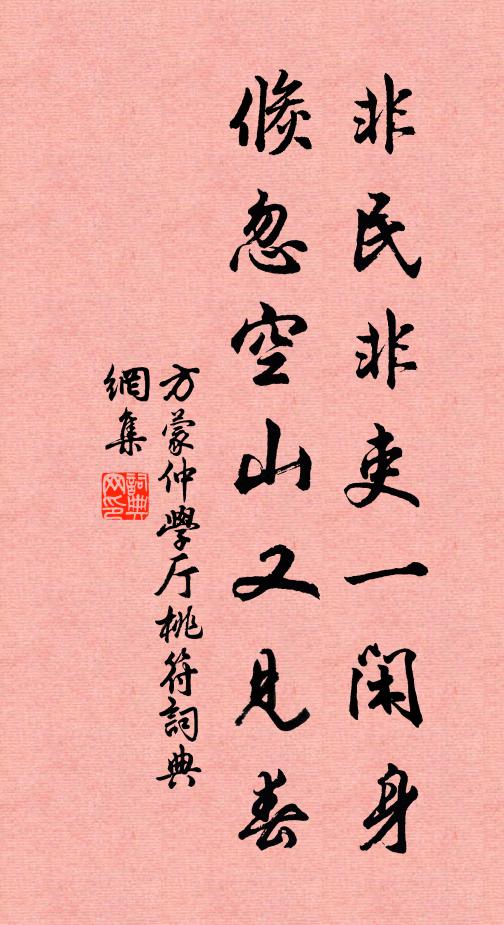 非民非吏一閑身
倏忽空山又見春
方蒙仲學厅桃符詞典
網集
詞典
网印